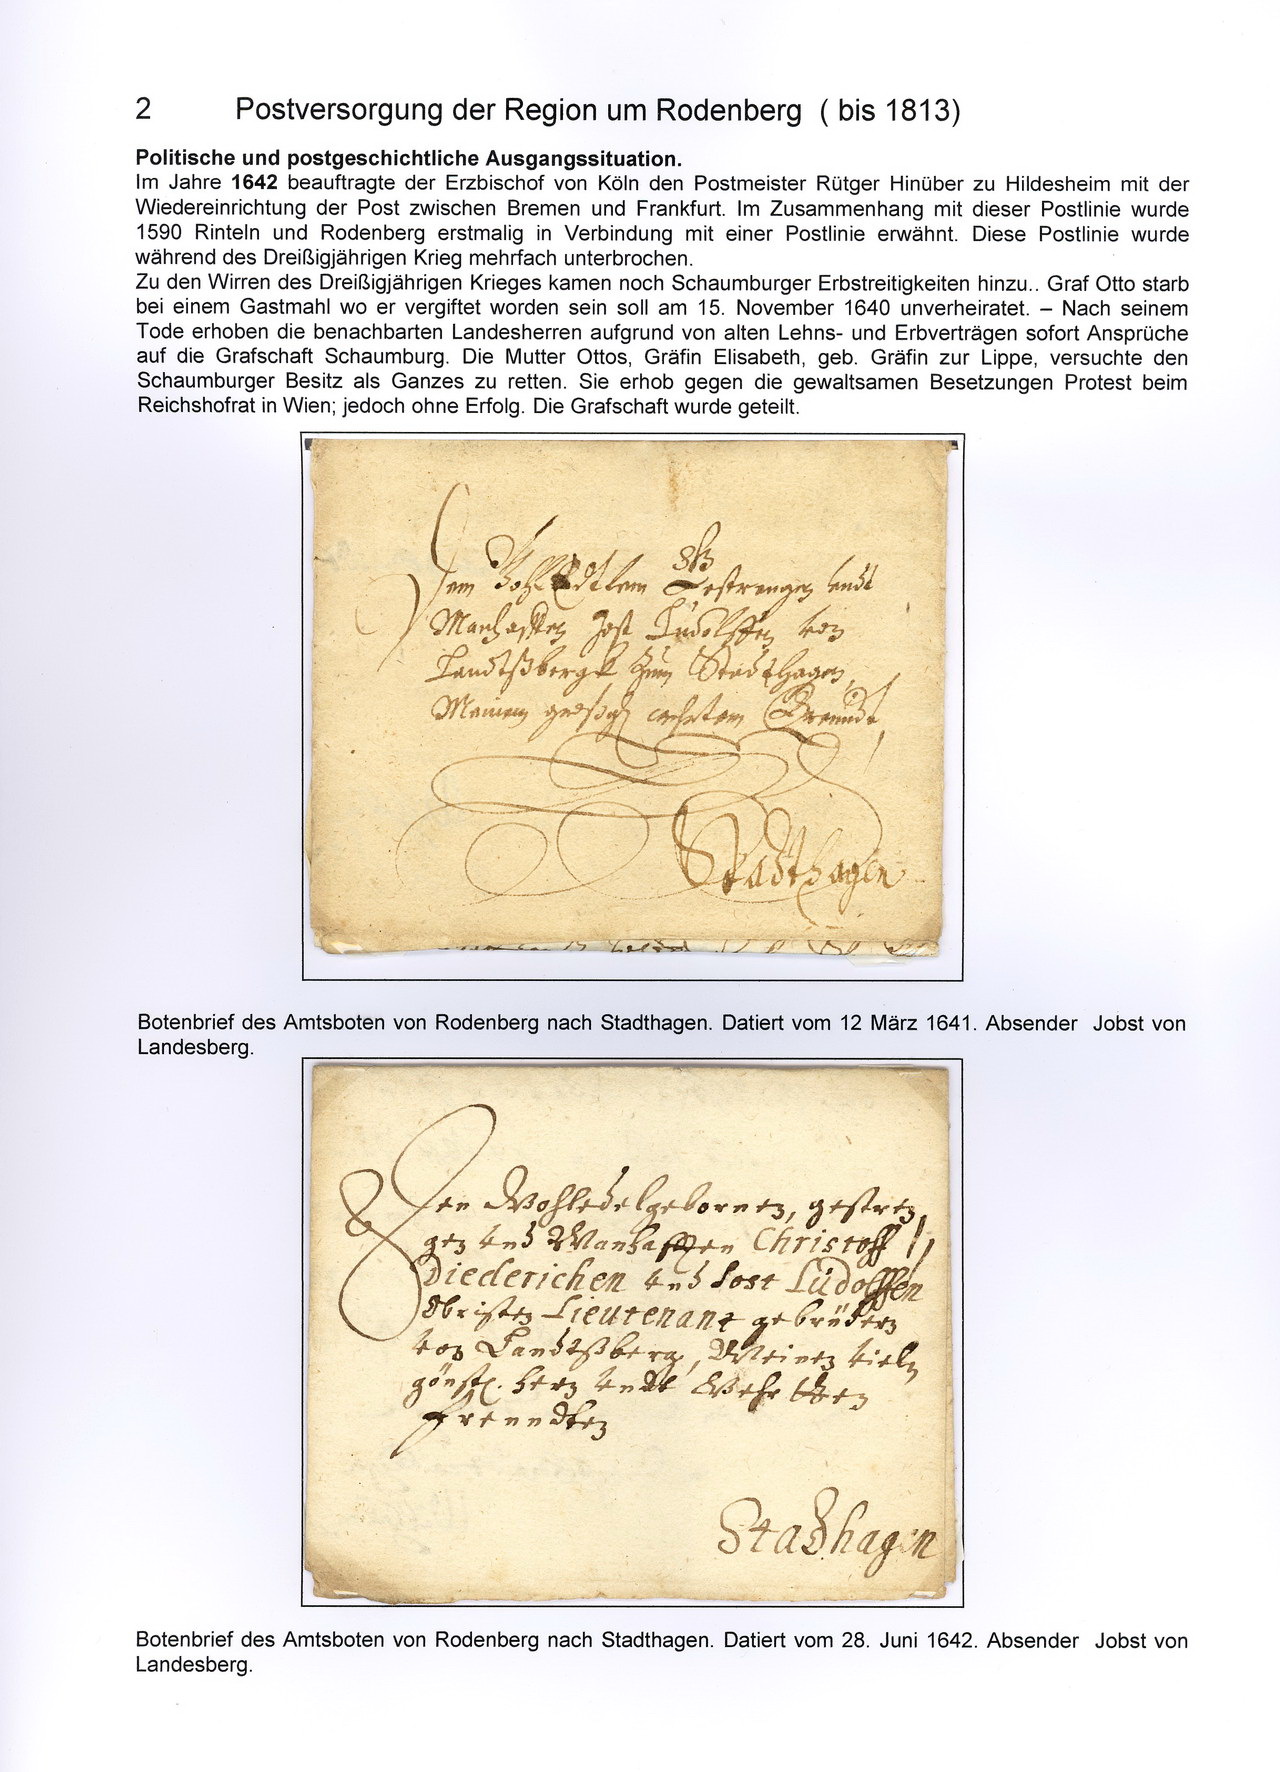 2 Postversorgung der Region um Rodenberg ( bis 1813)
Politische und postgeschichtliche Ausgangssituation.
Im Jahre 1642 beauftragte der Erzbischof von Köln den Postmeister Rütger Hinüber zu Hildesheim mit der
Wiedereinrichtung der Post zwischen Bremen und Frankfurt. Im Zusammenhang mit dieser Postlinie wurde
1590 Rinteln und Rodenberg erstmalig in Verbindung mit einer Postlinie erwähnt. Diese Postlinie wurde
während des Dreißigjährigen Krieg mehrfach unterbrochen.
Zu den Wirren des Dreißigjährigen Krieges kamen noch Schaumburger Erbstreitigkeiten hinzu.. Graf Otto starb
bei einem Gastmahl wo er vergiftet worden sein soll am 15. November 1640 unverheiratet. – Nach seinem
Tode erhoben die benachbarten Landesherren aufgrund von alten Lehns- und Erbverträgen sofort Ansprüche
auf die Grafschaft Schaumburg. Die Mutter Ottos, Gräfin Elisabeth, geb. Gräfin zur Lippe, versuchte den
Schaumburger Besitz als Ganzes zu retten. Sie erhob gegen die gewaltsamen Besetzungen Protest beim
Reichshofrat in Wien; jedoch ohne Erfolg. Die Grafschaft wurde geteilt.
Dem Gestrengen undt
Manhafften Jost Ludolffen von
Landtßbergk zum Stadthagen,
Meinem Freundt
Stadthagen
Botenbrief des Amtsboten von Rodenberg nach Stadthagen. Datiert vom 12 März 1641. Absender Jobst von
Landesberg.
Den Wohledelgebornen, gestren
gen und Manhafften Christoff
Diederichen und Jost Lüdolffen
Obristen Lieutenant gebrüdern
von Landtßberg, Meinen vieln
günstl. hern undt
freundten
Stadhagen
Botenbrief des Amtsboten von Rodenberg nach Stadthagen. Datiert vom 28. Juni 1642. Absender Jobst von
Landesberg.